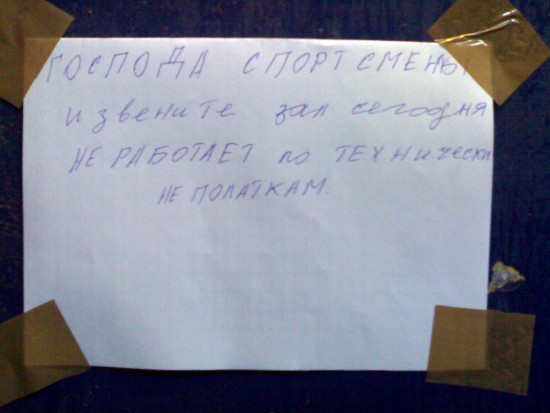 ГОСПОДА СПОРТСМЕНЫ
извените зал сегодня
НЕ РАБОТАЕТ по ТЕХНИчески
НЕ ПОЛАТКАМ.